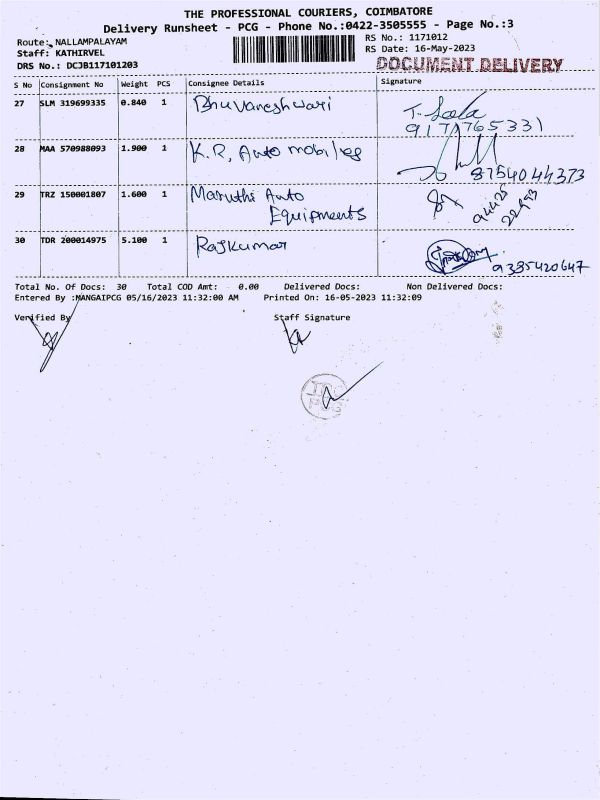 THE PROFESSIONAL COURIERS, COIMBATORE
Delivery Runsheet - PCG - Phone No.:0422-3505555 - Page No.:3
Route: NALLAMPALAYAM
RS No.: 1171012
Staff: KATHIRVEL
RS Date: 16-May-2023
DRS No.: DCJB117101203
DOCUMENT DELIVERY
S No Consignment No Weight PCS Consignee Details Signature
27 SLM 319699335 0.840 1 Bhuvaneshwari
28 MAA 570988093 1.900 1 K.R. Auto mobiles 8754044373
29 TRZ 150001807 1.600 1 Maruthi Auto
Equipments
30 TDR 200014975 5.100 1 Rajkumar 9385420647
Total No. Of Docs: 30 Total COD Amt: 0.00 Delivered Docs: Non Delivered Docs:
Entered By :MANGAIPCG 05/16/2023 11:32:00 AM Printed On: 16-05-2023 11:32:09
Verified By Staff Signature